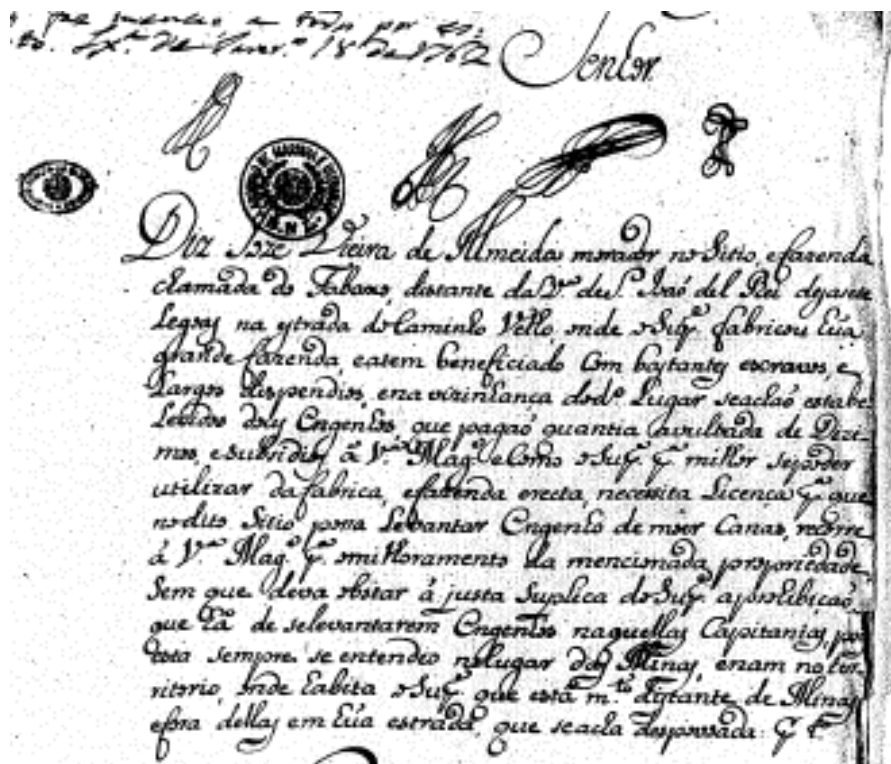 se faz mercê a todo por es-
to. Lx.ª de Janr.º 18 de 1762
Senhor
Diz Joze Vieira de Almeida morador no Sitio, e fazenda
chamada do Tabaxo, distante da V.ª de S. Joaõ del Rei dezasete
Legoas na estrada do Caminho Velho, onde o Sup.e fabricou hũa
grande fazenda, e a tem beneficiado com bastantes escravos, e
Largos dispendios, e na vizinhança do d.º Lugar se achaõ estabe-
Lecidos dois Engenhos, que pagaõ quantia avultada de Dizi-
mos, e subsidios á V.ª Mag.e e Como o Sup.e p.ª milhor se poder
utilizar da fabrica, e fazenda erecta, necessita Licença p.ª que
no dito Sitio possa Levantar Engenho de moer Canas, recorre
á V.ª Mag.e p.ª o milhoramento da mencionada propriedade,
Sem que deva obstar á justa Suplica do Sup.e a prohibicaõ
que há de se levantarem Engenhos naquellas Capitanias, por
esta sempre se entendeo no lugar das Minas, e nam no ter-
ritorio, onde habita o Sup.e que está m.to distante de Minas
e fora dellas em hũa estrada, que se acha despovoada